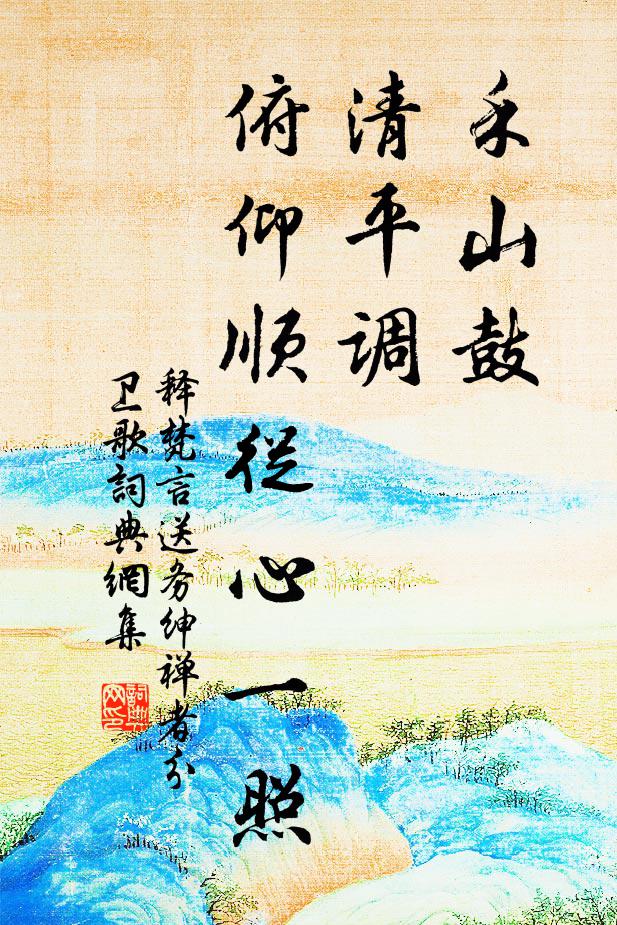 禾山鼓
清平调
俯仰顺從心一照
释梵言送务绅禅者分
卫歌詞典網集
詞典网印